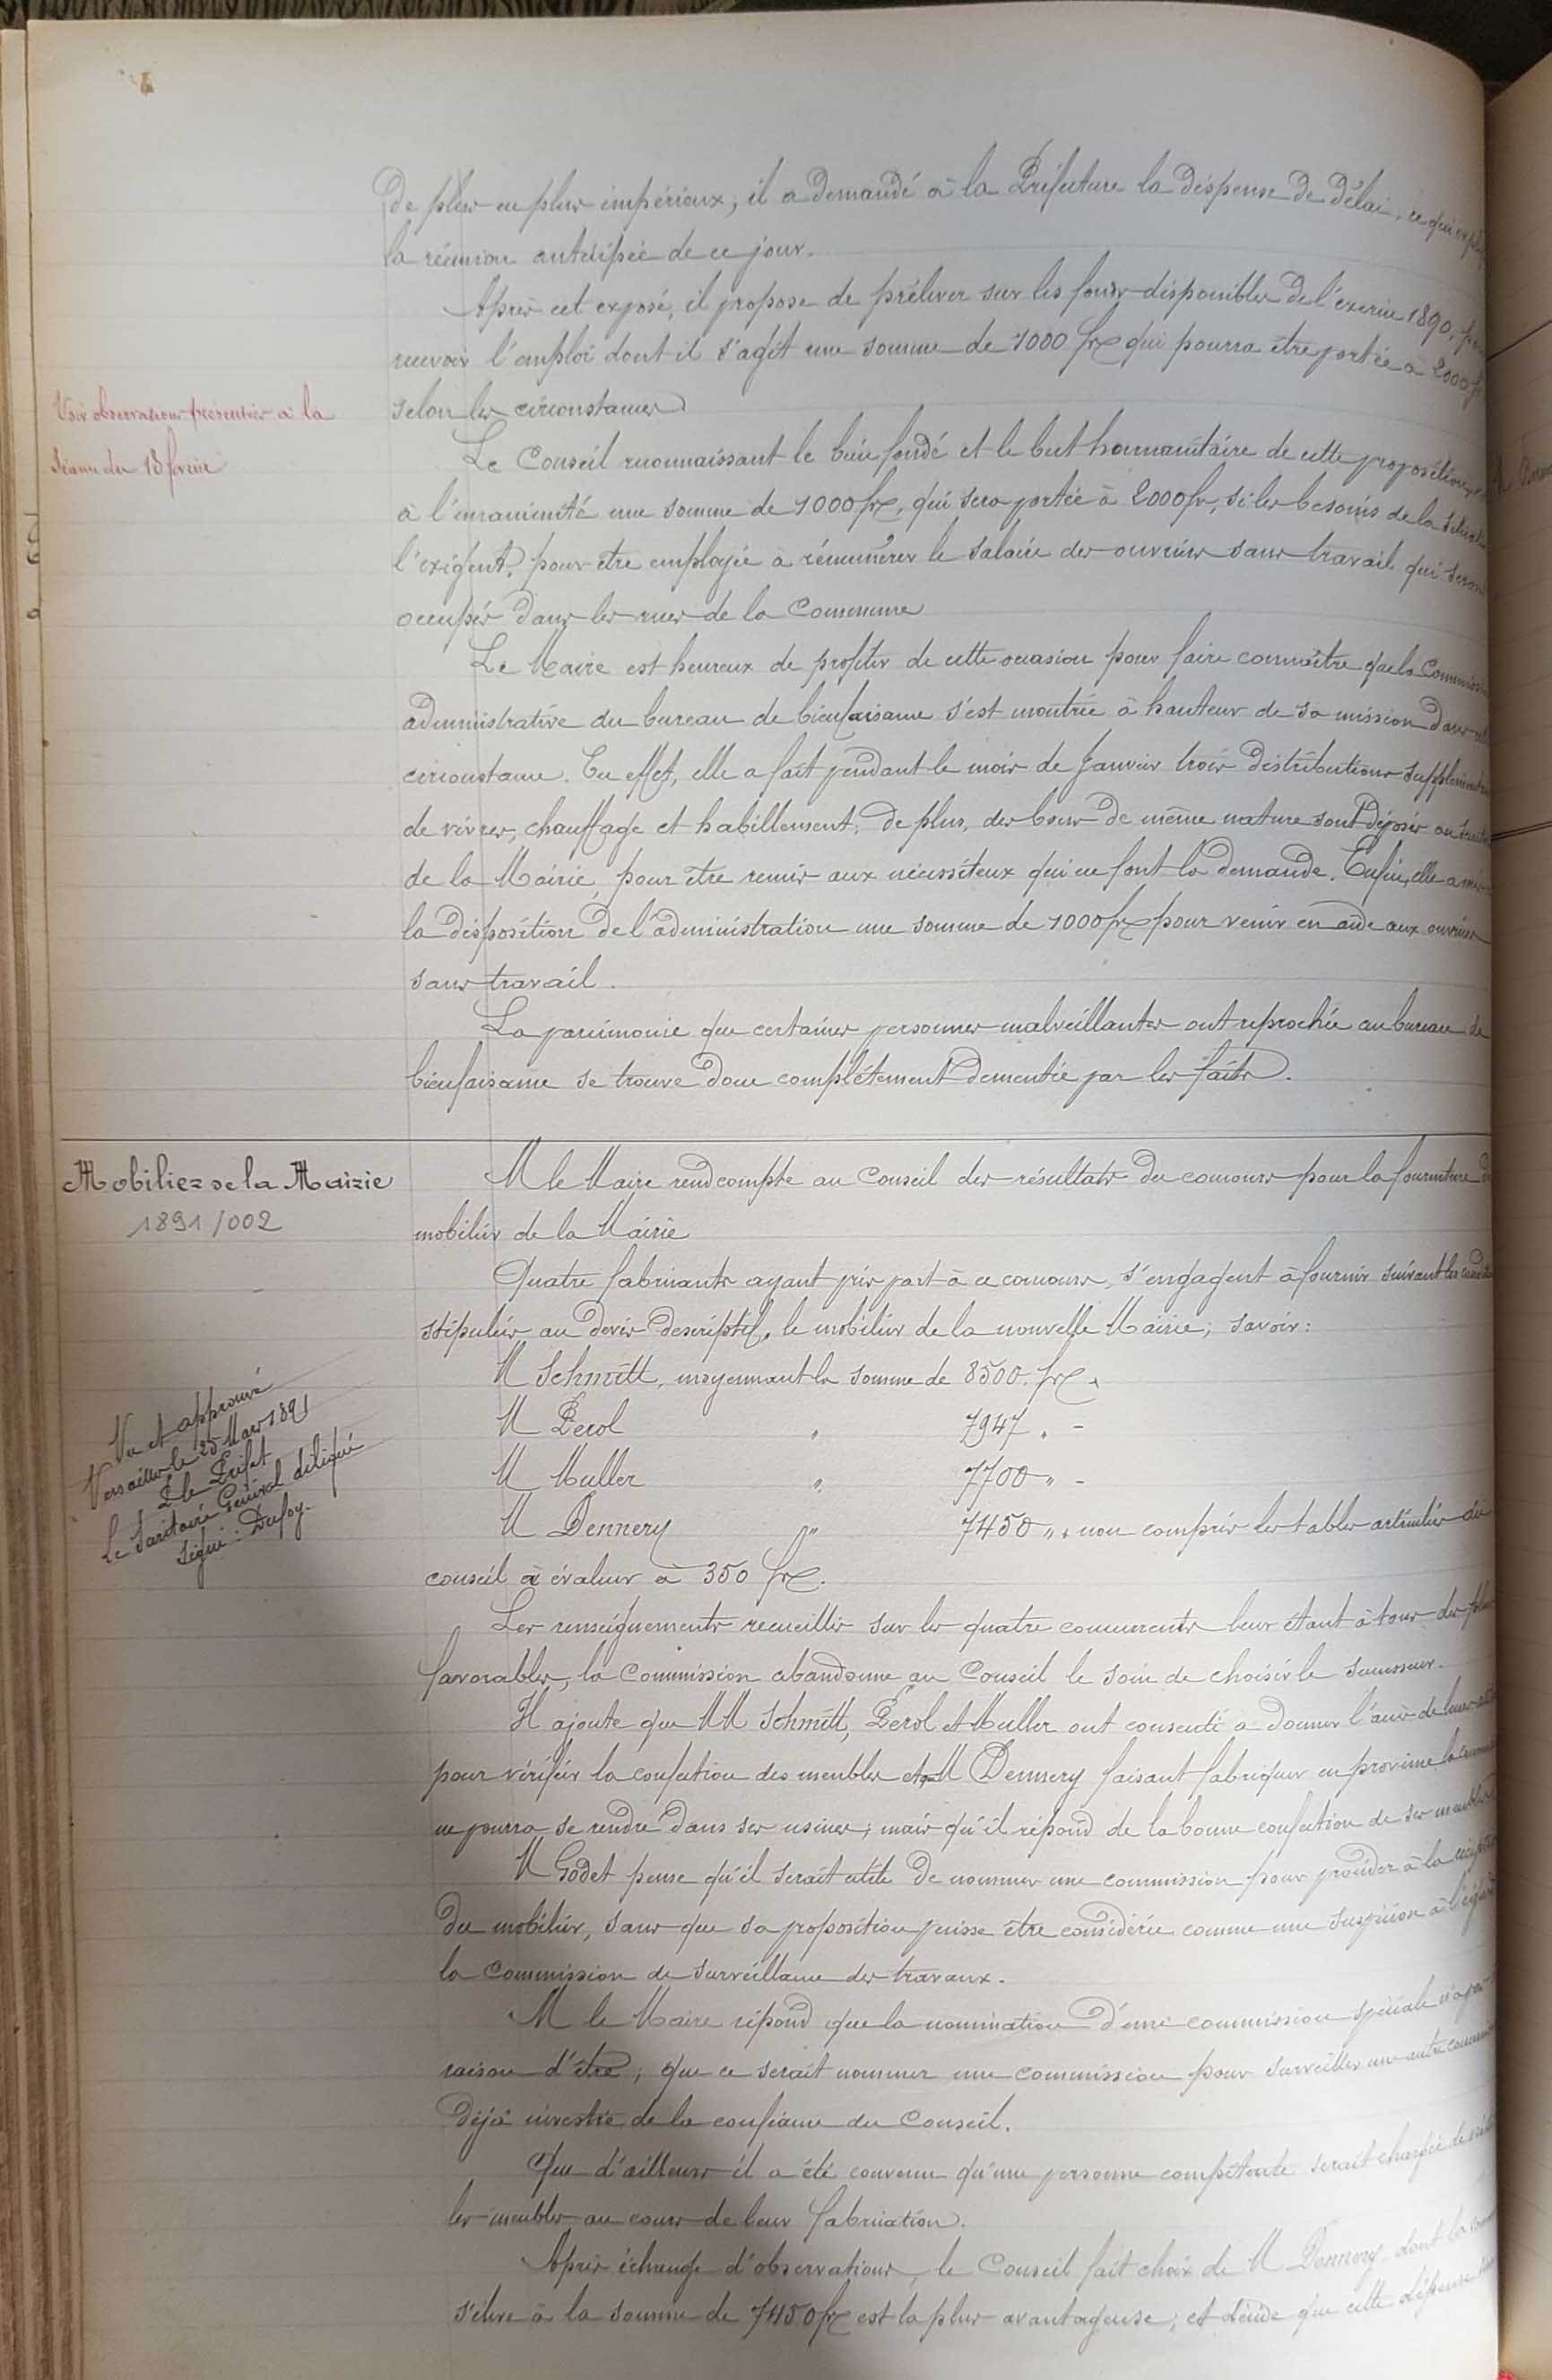 de plus en plus impérieux, il a demandé à la Préfecture la dispense de délai, ce qui
la réunion anticipée de ce jour.
Après cet exposé, il propose de prélever sur les fonds disponibles de l'exercice 1890, pour
recevoir l'emploi dont il s'agit une somme de 1000 frs qui pourra être portée à 2000 f
selon les circonstances
Voir observations présentées à la
séance du 13 février
Le Conseil reconnaissant le bien fondé et le but humanitaire de cette proposition,
à l'unanimité une somme de 1000 frs, qui sera portée à 2000 fr, si les besoins de la
l'exigent, pour être employée à rémunérer le salaire des ouvriers sans travail qui seront
occupés dans les rues de la Commune
Le Maire est heureux de profiter de cette occasion pour faire connaître que la Commission
administrative du bureau de bienfaisance s'est montrée à hauteur de sa mission dans
circonstance. En effet, elle a fait pendant le mois de Janvier trois distributions
de vivres, chauffage et habillement; de plus, des bons de même nature sont déposés au
de la Mairie, pour être remis aux nécessiteux qui en font la demande. Enfin, elle a mis
la disposition de l'administration une somme de 1000 frs pour venir en aide aux ouvriers
sans travail.
La parcimonie que certaines personnes malveillantes ont reprochée au bureau de
bienfaisance se trouve donc complétement dementie par les faits.
Mobilier de la Mairie
1891/002
M le Maire rend compte au Conseil des résultats du concours pour la fourniture du
mobilier de la Mairie
Quatre fabricants ayant pris part à ce concours, s'engagent à fournir suivant les
stipulées au devis descriptif, le mobilier de la nouvelle Mairie; savoir:
M Schmitt, moyennant la somme de 8500 frs
M Perol " 7947 " -
M Muller " 7700 " -
M Dennery " 7450 " non compris les tables articulées du
conseil à évaluer à 350 frs.
Vu et approuvé
Versailles le 25 Mars 1891
P le Préfet
Le Secrétaire Général délégué
Signé: Dufoy.
Les renseignements recueillis sur les quatre concurrents leur étant à tous des plus
favorables, la Commission abandonne au Conseil le soin de choisir le
Il ajoute que MM Schmitt, Perol et Muller ont consenti à donner l'
pour vérifier la confection des meubles et que M Dennery faisant fabriquer en province la
ne pourra se rendre dans ses usines; mais qu'il répond de la bonne confection de ses meubles
M Godet pense qu'il serait utile de nommer une commission pour procéder à la réception
du mobilier, sans que sa proposition puisse être considérée comme une suspicion à l'égard
la Commission de surveillance des travaux.
M le Maire répond que la nomination d'une commission spéciale n'a pas
raison d'être; que ce serait nommer une commission pour surveiller une autre commission
déjà investie de la confiance du Conseil.
Que d'ailleurs il a été convenu qu'une personne compétente serait chargée de
les meubles au cours de leur fabrication.
Après échange d'observations, le Conseil fait choix de M Dennery dont la
s'élève à la somme de 7450 frs est la plus avantageuse; et décide que cette dépense